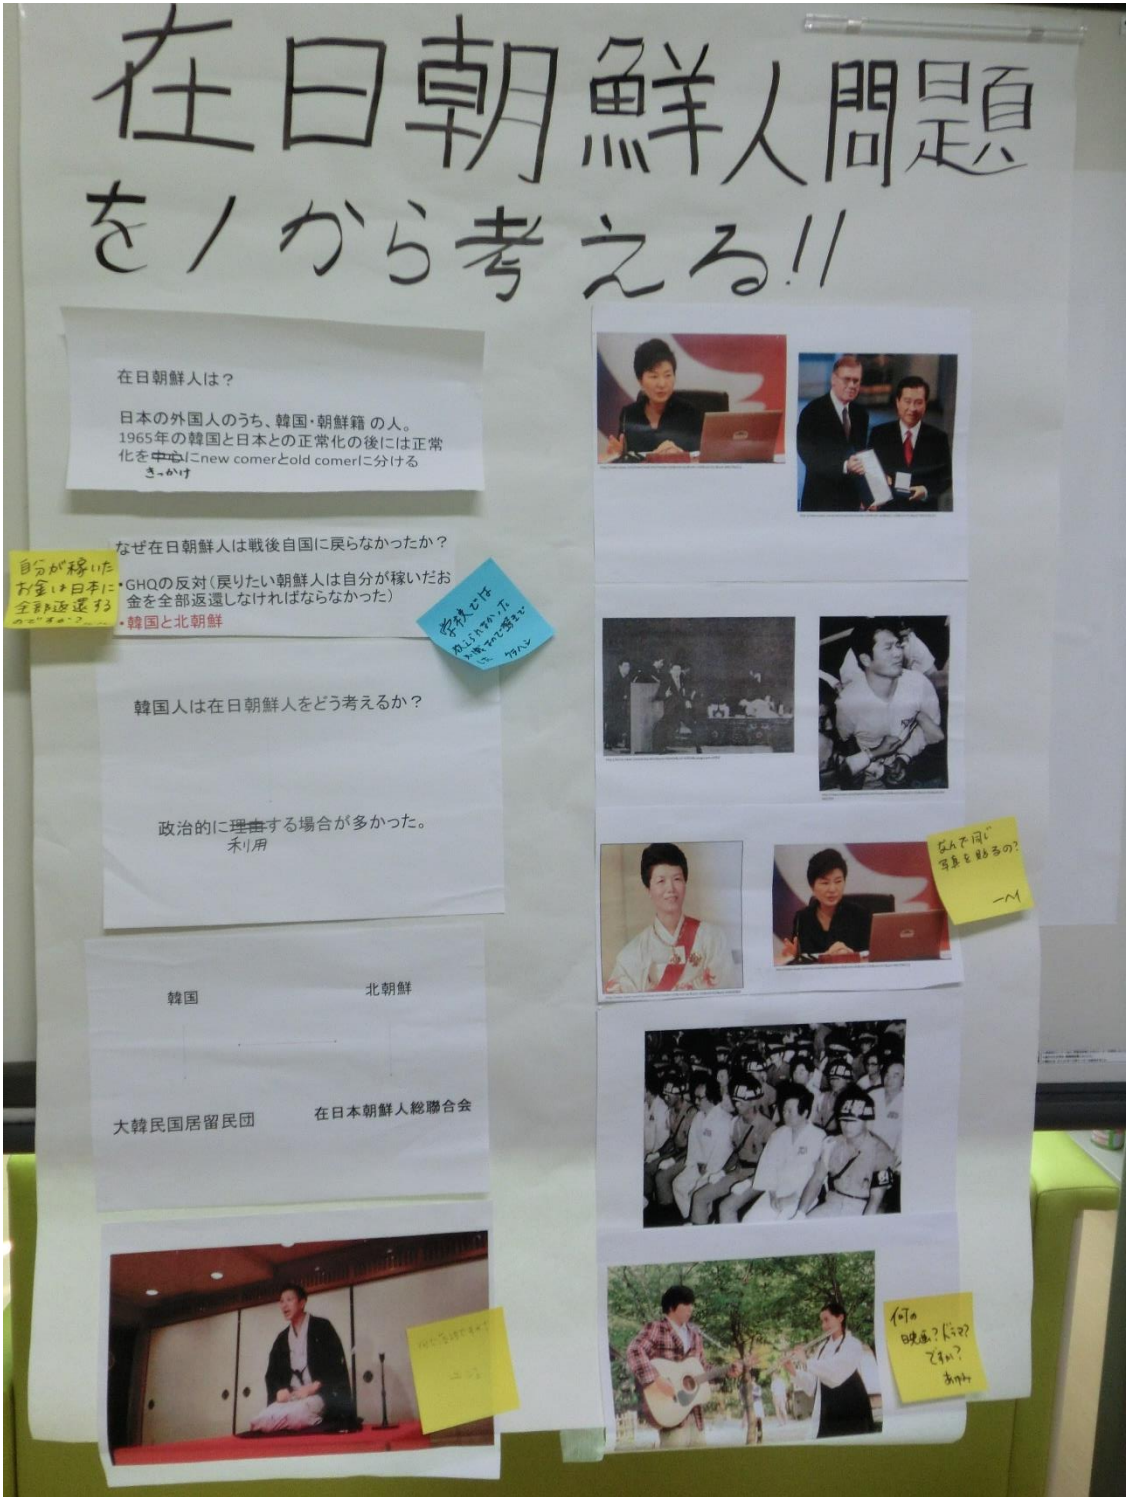 在日朝鮮人問題
を1から考える!!
在日朝鮮人は？
日本の外国人のうち、韓国・朝鮮籍 の人。
1965年の韓国と日本との正常化の後には正常
化を中心にnew comerとold comerに分ける
きっかけ
なぜ在日朝鮮人は戦後自国に戻らなかったか？
・GHQの反対（戻りたい朝鮮人は自分が稼いだお
金を全部返還しなければならなかった）
・韓国と北朝鮮
自分が稼いた
お金は日本に
全部返還する
のですか?
学校では
教えられなかった
クラヘン
韓国人は在日朝鮮人をどう考えるか？
政治的に理由する場合が多かった。
利用
韓国
北朝鮮
大韓民国居留民団
在日本朝鮮人総聯合会
なんで同じ
写真を貼るの?
ーヘイ
何の
映画?ドラマ?
ですか?
あゆみ